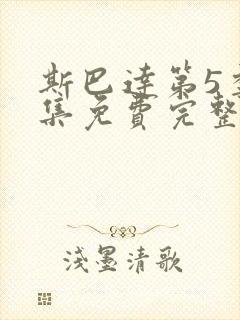 斯巴達第5
集免費完整
淺墨清歌